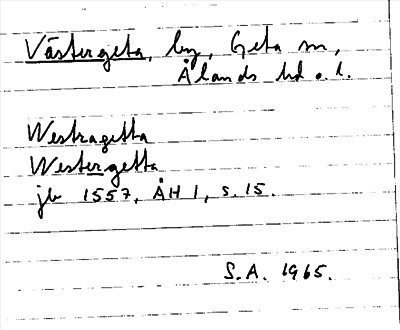 Västergeta, by, Geta sn,
Ålands hd o. l.
Westragetta
Westergetta
jb 1557, ÅH 1, s. 15.
S.A. 1965.